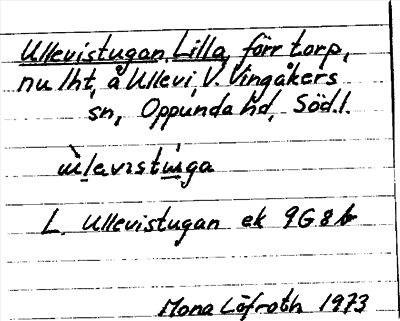 Ullevistugan, Lilla, förr torp,
nu lht, å Ullevi, V. Vingåkers
sn, Oppunda hd, Söd.l.
L. Ullevistugan ek 9G 8 b
Mona Löfroth 1973